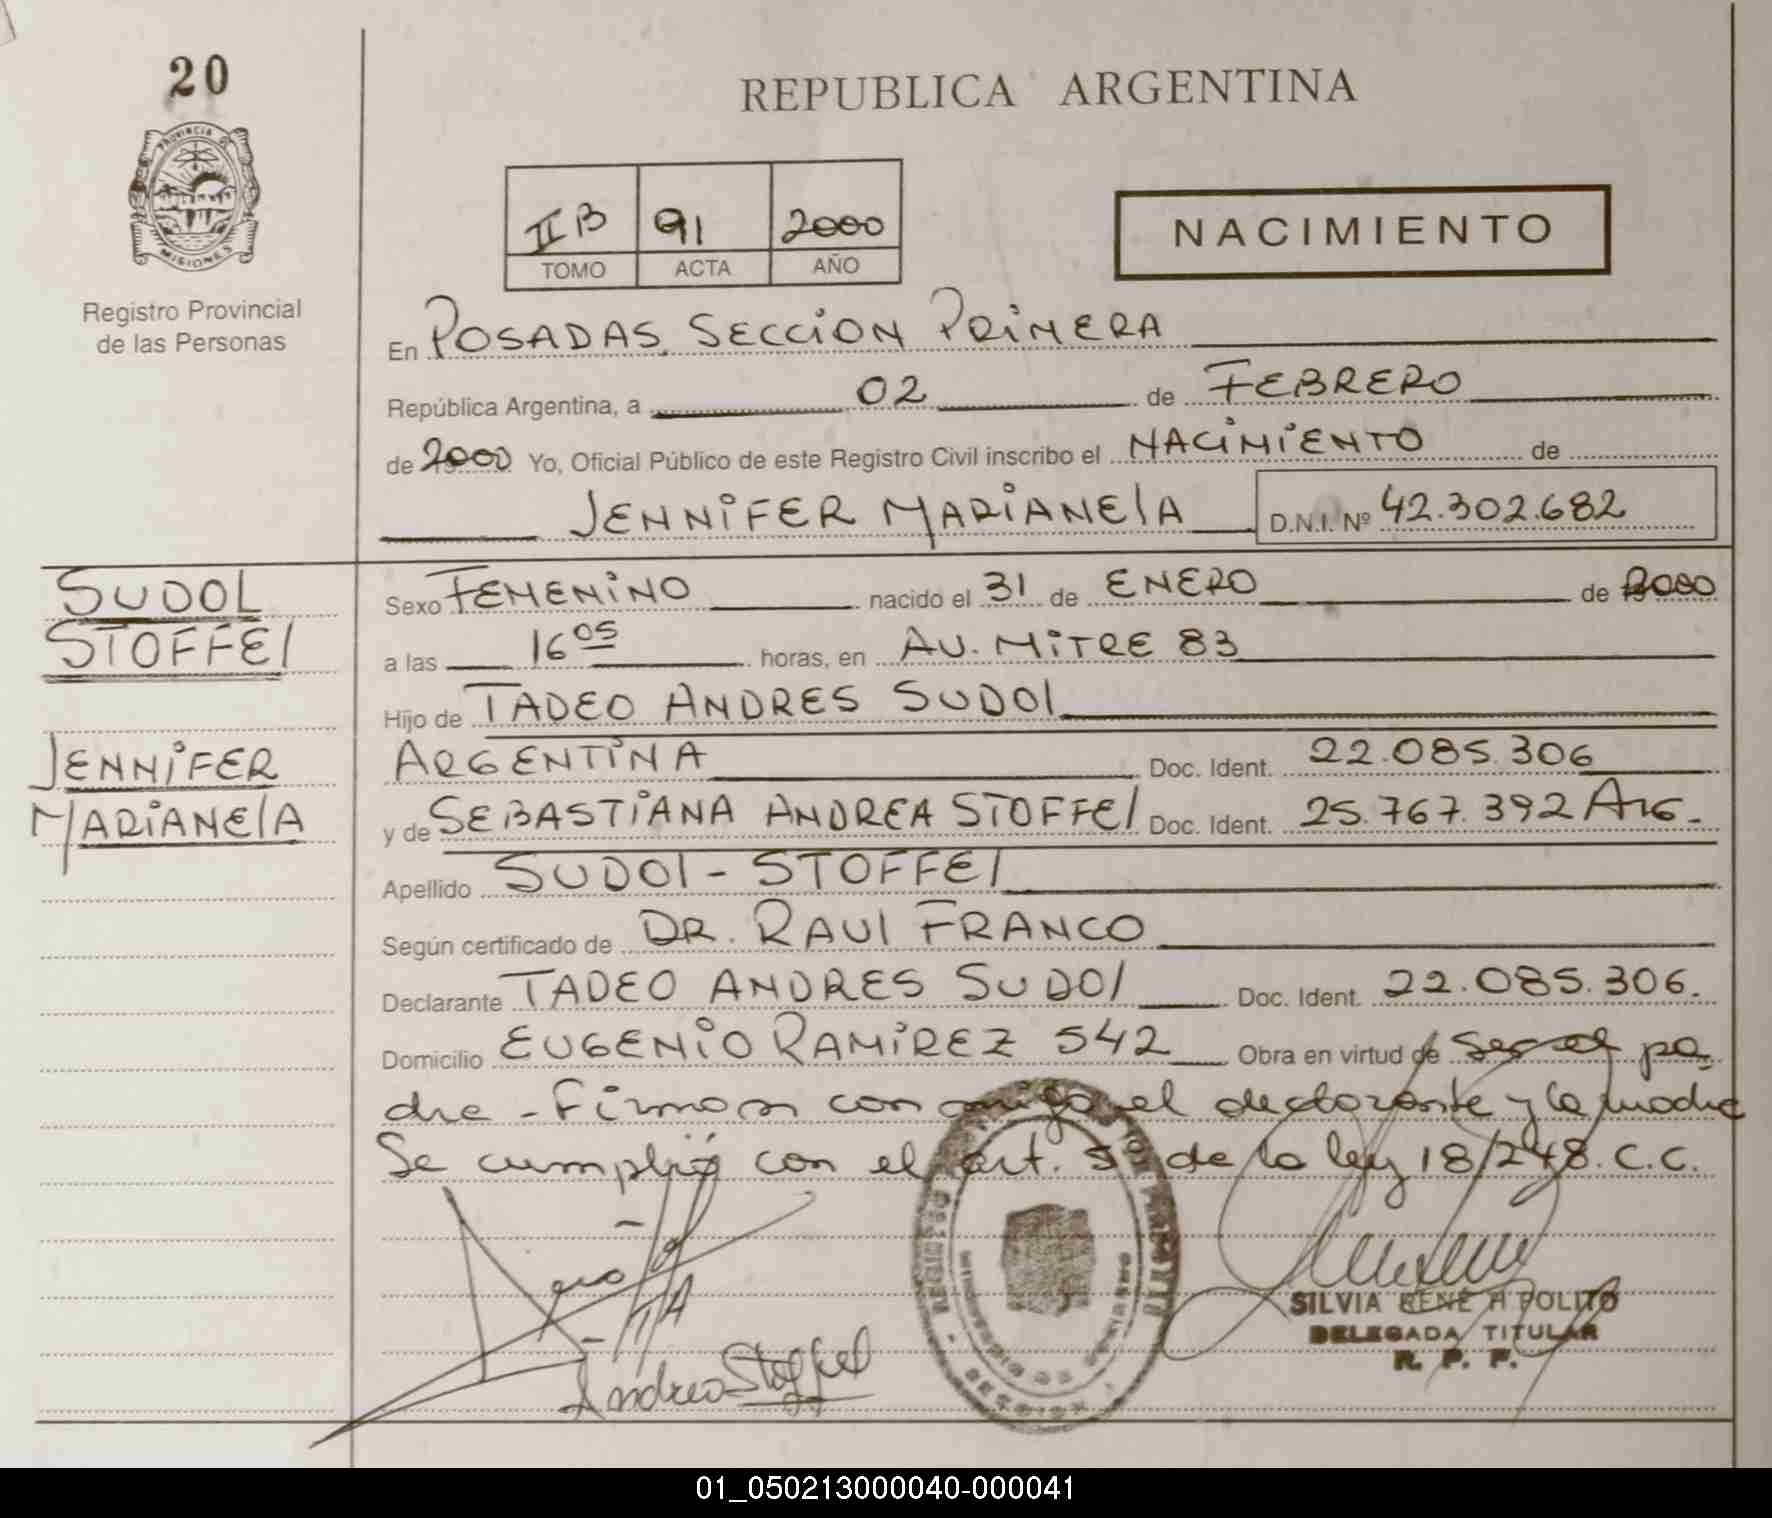 20
REPUBLICA ARGENTINA
PROVINCIA DE
MISIONES
Registro Provincial
de las Personas
II B 91 2000
TOMO ACTA AÑO
NACIMIENTO
En POSADAS SECCION PRIMERA
República Argentina, a 02 de FEBRERO
de 2000 Yo, Oficial Público de este Registro Civil inscribo el NACIMIENTO de
JENNIFER MARIANELA D.N.I. Nº 42.302.682
SUDOL
STOFFEL
JENNIFER
MARIANELA
Sexo FEMENINO nacido el 31 de ENERO de 2000
a las 16 05 horas, en AV. MITRE 83
Hijo de TADEO ANDRES SUDOL
ARGENTINA Doc. Ident. 22.085.306
y de SEBASTIANA ANDREA STOFFEL Doc. Ident. 25.767.392 ARG.
Apellido SUDOL - STOFFEL
Según certificado de DR. RAUL FRANCO
Declarante TADEO ANDRES SUDOL Doc. Ident. 22.085.306.
Domicilio EUGENIO RAMIREZ 542 Obra en virtud de Ser el pa
dre - Firman conmigo el declarante y la madre
Se cumplió con el art. 5º de la ley 18/248. C.C.
Andrea Stoffel
SILVIA RENE H POLITO
DELEGADA TITULAR
R. P. P.
01_050213000040-000041